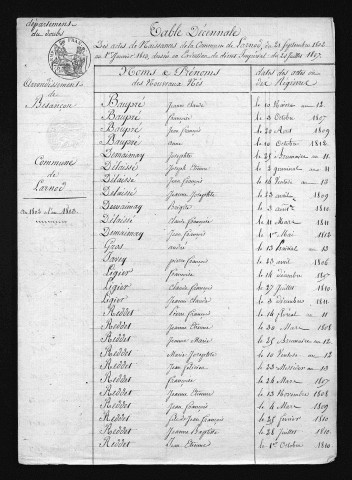 département
du doubs
Table Décennale
Des actes de Naissances de la Commune de Larnod, du 24 Septembre 1802
au 1er Janvier 1813, dressée en Exécution du décret Impérial du 20 Juillet 1807.
Arrondissement
de
Besançon
Commune
de
Larnod
Noms & Prénoms
des Nouveaux Nés
dates des actes ou
du Régistre
Baupré Jeanne Claude le 10 an 12
Baupré françoise le 4 Octobre 1807
Baupré Jean françois le 20 Aout 1809
Baupré anne le 10 Octobre 1812
Demaimay Josephte le 25 Brumaire an 11
Délaisse Joseph Etienne le 2 germinal an 11
Délaisse Jean françois le 16 Ventose an 13
Délaisse Jeanne Josephte le 23 1809
Demaimay Brigite le 3 avril 1810
Délaisse Claude françois le 11 Mars 1811
Demaimay Jean françois le 1er Mai 1812
Gros andré le 13 an 13
pierre françois le 23 avril 1806
Ligier françoise le 16 décembre 1807
Ligier Claude françois le 27 Juillet 1810
Ligier Jeanne Claude le 3 décembre 1811
Reddet Pierre françois le 16 floréal an 11
Reddet Jeanne Etienne le 30 Mars 1808
Reddet Jeanne Marie le 25 Brumaire an 12
Reddet Marie Josephte le 10 Ventose an 12
Reddet Jean le 23 Messidor an 13
Reddet françoise le 26 Mars 1807
Reddet Jeanne Etienne le 13 Novembre 1808
Reddet Jean françois le 4 Mars 1809
Reddet Jean françois le 25 février 1810
Reddet Jeanne Baptiste le 28 Juillet 1810
Reddet Jean Etienne le 1er Octobre 1810